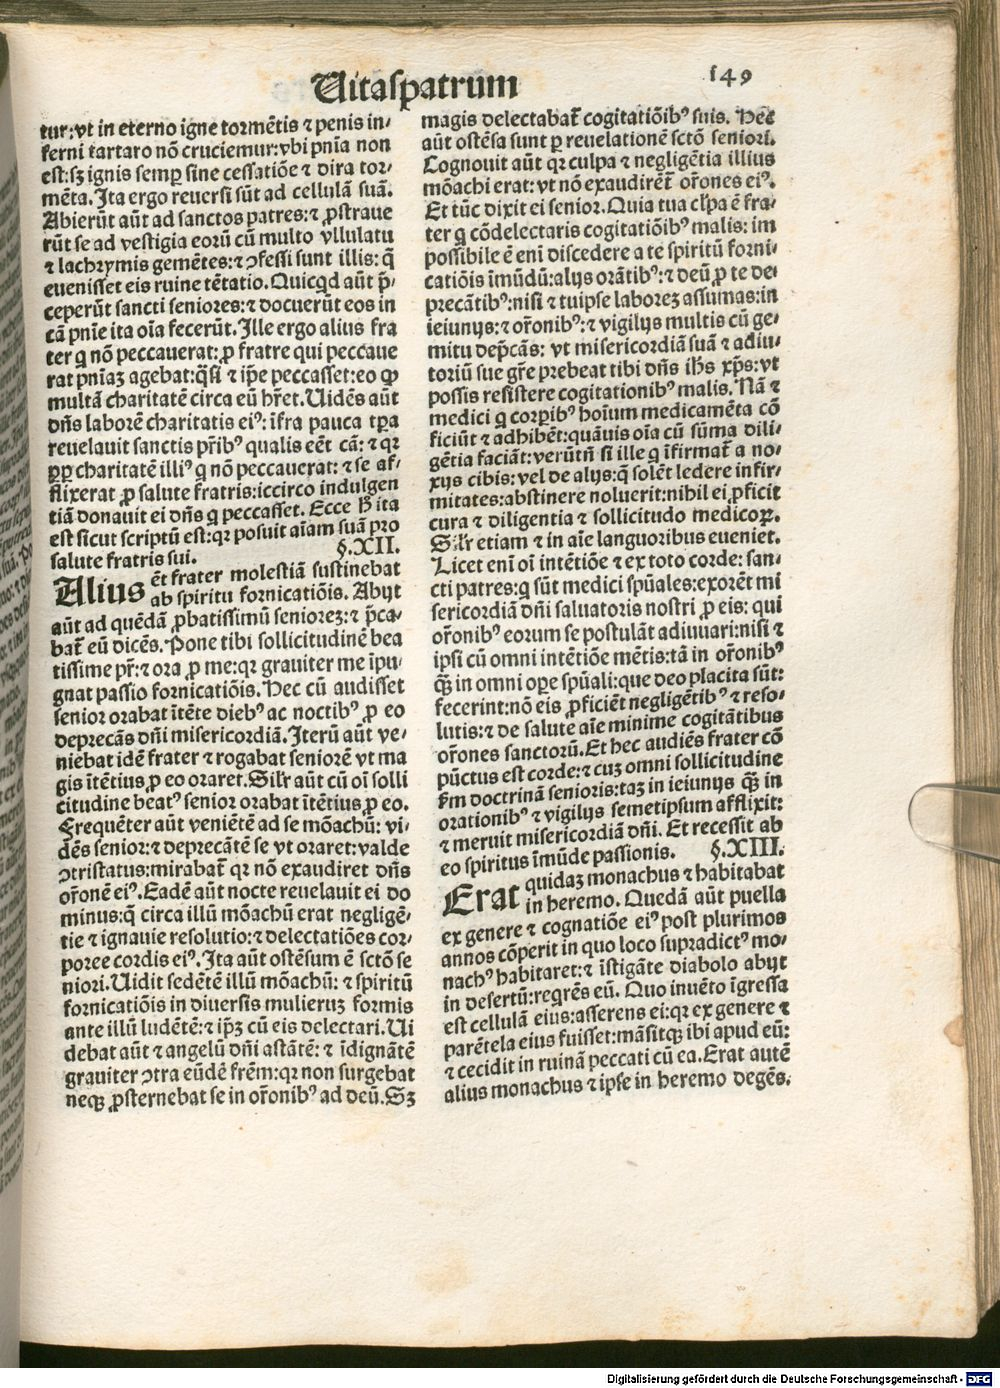 Uitaspatrum
149
tur:vt in eterno igne tormẽtis ⁊ penis in-
ferni tartaro nõ cruciemur:vbi pñia non
est:sꝫ ignis semꝑ sine cessatiõe ⁊ dira tor-
mẽta. Ita ergo reuersi sũt ad cellulã suã.
Abierũt aũt ad sanctos patres:⁊ ꝓstraue
rũt se ad vestigia eorũ cũ multo vllulatu
⁊ lachrymis gemẽtes:⁊ ↄfessi sunt illis: q̃
euenisset eis ruine tẽtatio. Quicqd aũt p̃-
ceperũt sancti seniores:⁊ docuerũt eos in
cã pnĩe ita oĩa fecerũt. Ille ergo alius fra
ter q nõ peccauerat: ꝓ fratre qui peccaue
rat pnĩaꝫ agebat:q̃si ⁊ ip̃e peccasset:eo ꝙ
multã charitatẽ circa eũ hr̃et. Uidẽs aũt
dñs laborẽ charitatis eiꝰ: ĩfra pauca tꝑa
reuelauit sanctis pr̃ibꝰ qualis eẽt cã: ⁊ qꝛ
ꝓꝑ charitatẽ illiꝰ q nõ peccauerat: ⁊ se af-
flixerat ꝓ salute fratris:iccirco indulgen
tiã donauit ei dñs q peccasset. Ecce h̃ ita
est sicut scriptũ est:qꝛ posuit aĩam suã pro
salute fratris sui. §.XII.
Alius ẽt frater molestiã sustinebat
ab spiritu fornicatiõis. Abijt
aũt ad quẽdã ꝓbatissimũ senioreꝫ:⁊ p̃ca-
bat̃ eũ dicẽs. Pone tibi sollicitudinẽ bea
tissime pr̃:⁊ ora ꝓ me:qꝛ grauiter me ĩpu-
gnat passio fornicatiõis. Hec cũ audisset
senior orabat ĩtẽte diebꝰ ac noctibꝰ ꝓ eo
deprecãs dñi misericordiã. Iterũ aũt ve-
niebat idẽ frater ⁊ rogabat seniorẽ vt ma
gis ĩtẽtius ꝓ eo oraret. Sil̃r aũt cũ oĩ solli
citudine beatꝰ senior orabat ĩtẽtius ꝓ eo.
Frequẽter aũt veniẽtẽ ad se mõachũ: vi-
dẽs senior:⁊ deprecãtẽ se vt oraret: valde
ↄtristatus:mirabat̃ qꝛ nõ exaudiret dñs
or̃onẽ eiꝰ. Eadẽ aũt nocte reuelauit ei do
minus:q̃ circa illũ mõachũ erat negligẽ-
tie ⁊ ignauie resolutio:⁊ delectatiões cor-
poree cordis eiꝰ. Ita aũt ostẽsum ẽ sctõ se
niori. Uidit sedẽtẽ illũ mõachũ: ⁊ spiritũ
fornicatiõis in diuersis mulieruꝫ formis
ante illũ ludẽtẽ:⁊ ip̃ꝫ cũ eis delectari. Ui
debat aũt ⁊ angelũ dñi astãtẽ: ⁊ ĩdignãtẽ
grauiter ↄtra eũdẽ fr̃em:qꝛ non surgebat
neqꝫ ꝓsternebat se in or̃onibꝰ ad deũ. Sꝫ
magis delectabat̃ cogitatiõibꝰ suis. Hec
aũt ostẽsa sunt ꝑ reuelationẽ sctõ seniori.
Cognouit aũt qꝛ culpa ⁊ negligẽtia illius
mõachi erat: vt nõ exaudirẽt̃ or̃ones eiꝰ.
Et tũc dixit ei senior. Quia tua cl̃pa ẽ fra-
ter q cõdelectaris cogitatiõibꝰ malis: im
possibile ẽ enĩ discedere a te spiritũ forni-
catiõis ĩmũdũ:alijs orãtibꝰ:⁊ deũ ꝓ te de-
precãtibꝰ:nisi ⁊ tuipse laboreꝫ assumas:in
ieiunijs:⁊ or̃onibꝰ:⁊ vigilijs multis cũ ge-
mitu dep̃cãs: vt misericordiã suã ⁊ adiu-
toriũ sue gr̃e prebeat tibi dñs ih̃s xp̃s:vt
possis resistere cogitationibꝰ malis. Nã ⁊
medici q corꝑibꝰ hoĩum medicamẽta cõ
ficiũt ⁊ adhibẽt:quãuis oĩa cũ sũma dili-
gẽtia faciãt:verũtñ si ille q ĩfirmat̃ a no-
xijs cibis: vel de alijs:q̃ solẽt ledere infir-
mitates:abstinere noluerit:nihil ei ꝓficit
cura ⁊ diligentia ⁊ sollicitudo medicoꝝ.
Sil̃r etiam ⁊ in aĩe languoribus eueniet.
Licet enĩ oĩ intẽtiõe ⁊ ex toto corde: san-
cti patres:q sũt medici spũales:exorẽt mi
sericordiã dñi saluatoris nostri ꝓ eis: qui
or̃onibꝰ eorum se postulãt adiuuari:nisi ⁊
ipsi cũ omni intẽtiõe mẽtis:tã in or̃onibꝰ
q̃ꝫ in omni oꝑe spũali:que deo placita sũt:
fecerint:nõ eis ꝓficiẽt negligẽtibꝰ ⁊ reso-
lutis:⁊ de salute aĩe minime cogitãtibus
or̃ones sanctorũ. Et hec audiẽs frater cõ
pũctus est corde:⁊ cuꝫ omni sollicitudine
fm̃ doctrinã senioris:taꝫ in ieiunijs q̃ꝫ in
orationibꝰ ⁊ vigilijs semetipsum afflixit:
⁊ meruit misericordiã dñi. Et recessit ab
eo spiritus ĩmũde passionis. §.XIII.
Erat quidaꝫ monachus ⁊ habitabat
in heremo. Quedã aũt puella
ex genere ⁊ cognatiõe eiꝰ post plurimos
annos cõperit in quo loco supradictꝰ mo-
nachꝰ habitaret:⁊ ĩstigãte diabolo abijt
in desertũ:reqrẽs eũ. Quo inuẽto ĩgressa
est cellulã eius:asserens ei:qꝛ ex genere ⁊
parẽtela eius fuisset:mãsitqꝫ ibi apud eũ:
⁊ cecidit in ruinã peccati cũ ea. Erat autẽ
alius monachus ⁊ ipse in heremo degẽs.
Digitalisierung gefördert durch die Deutsche Forschungsgemeinschaft - DFG